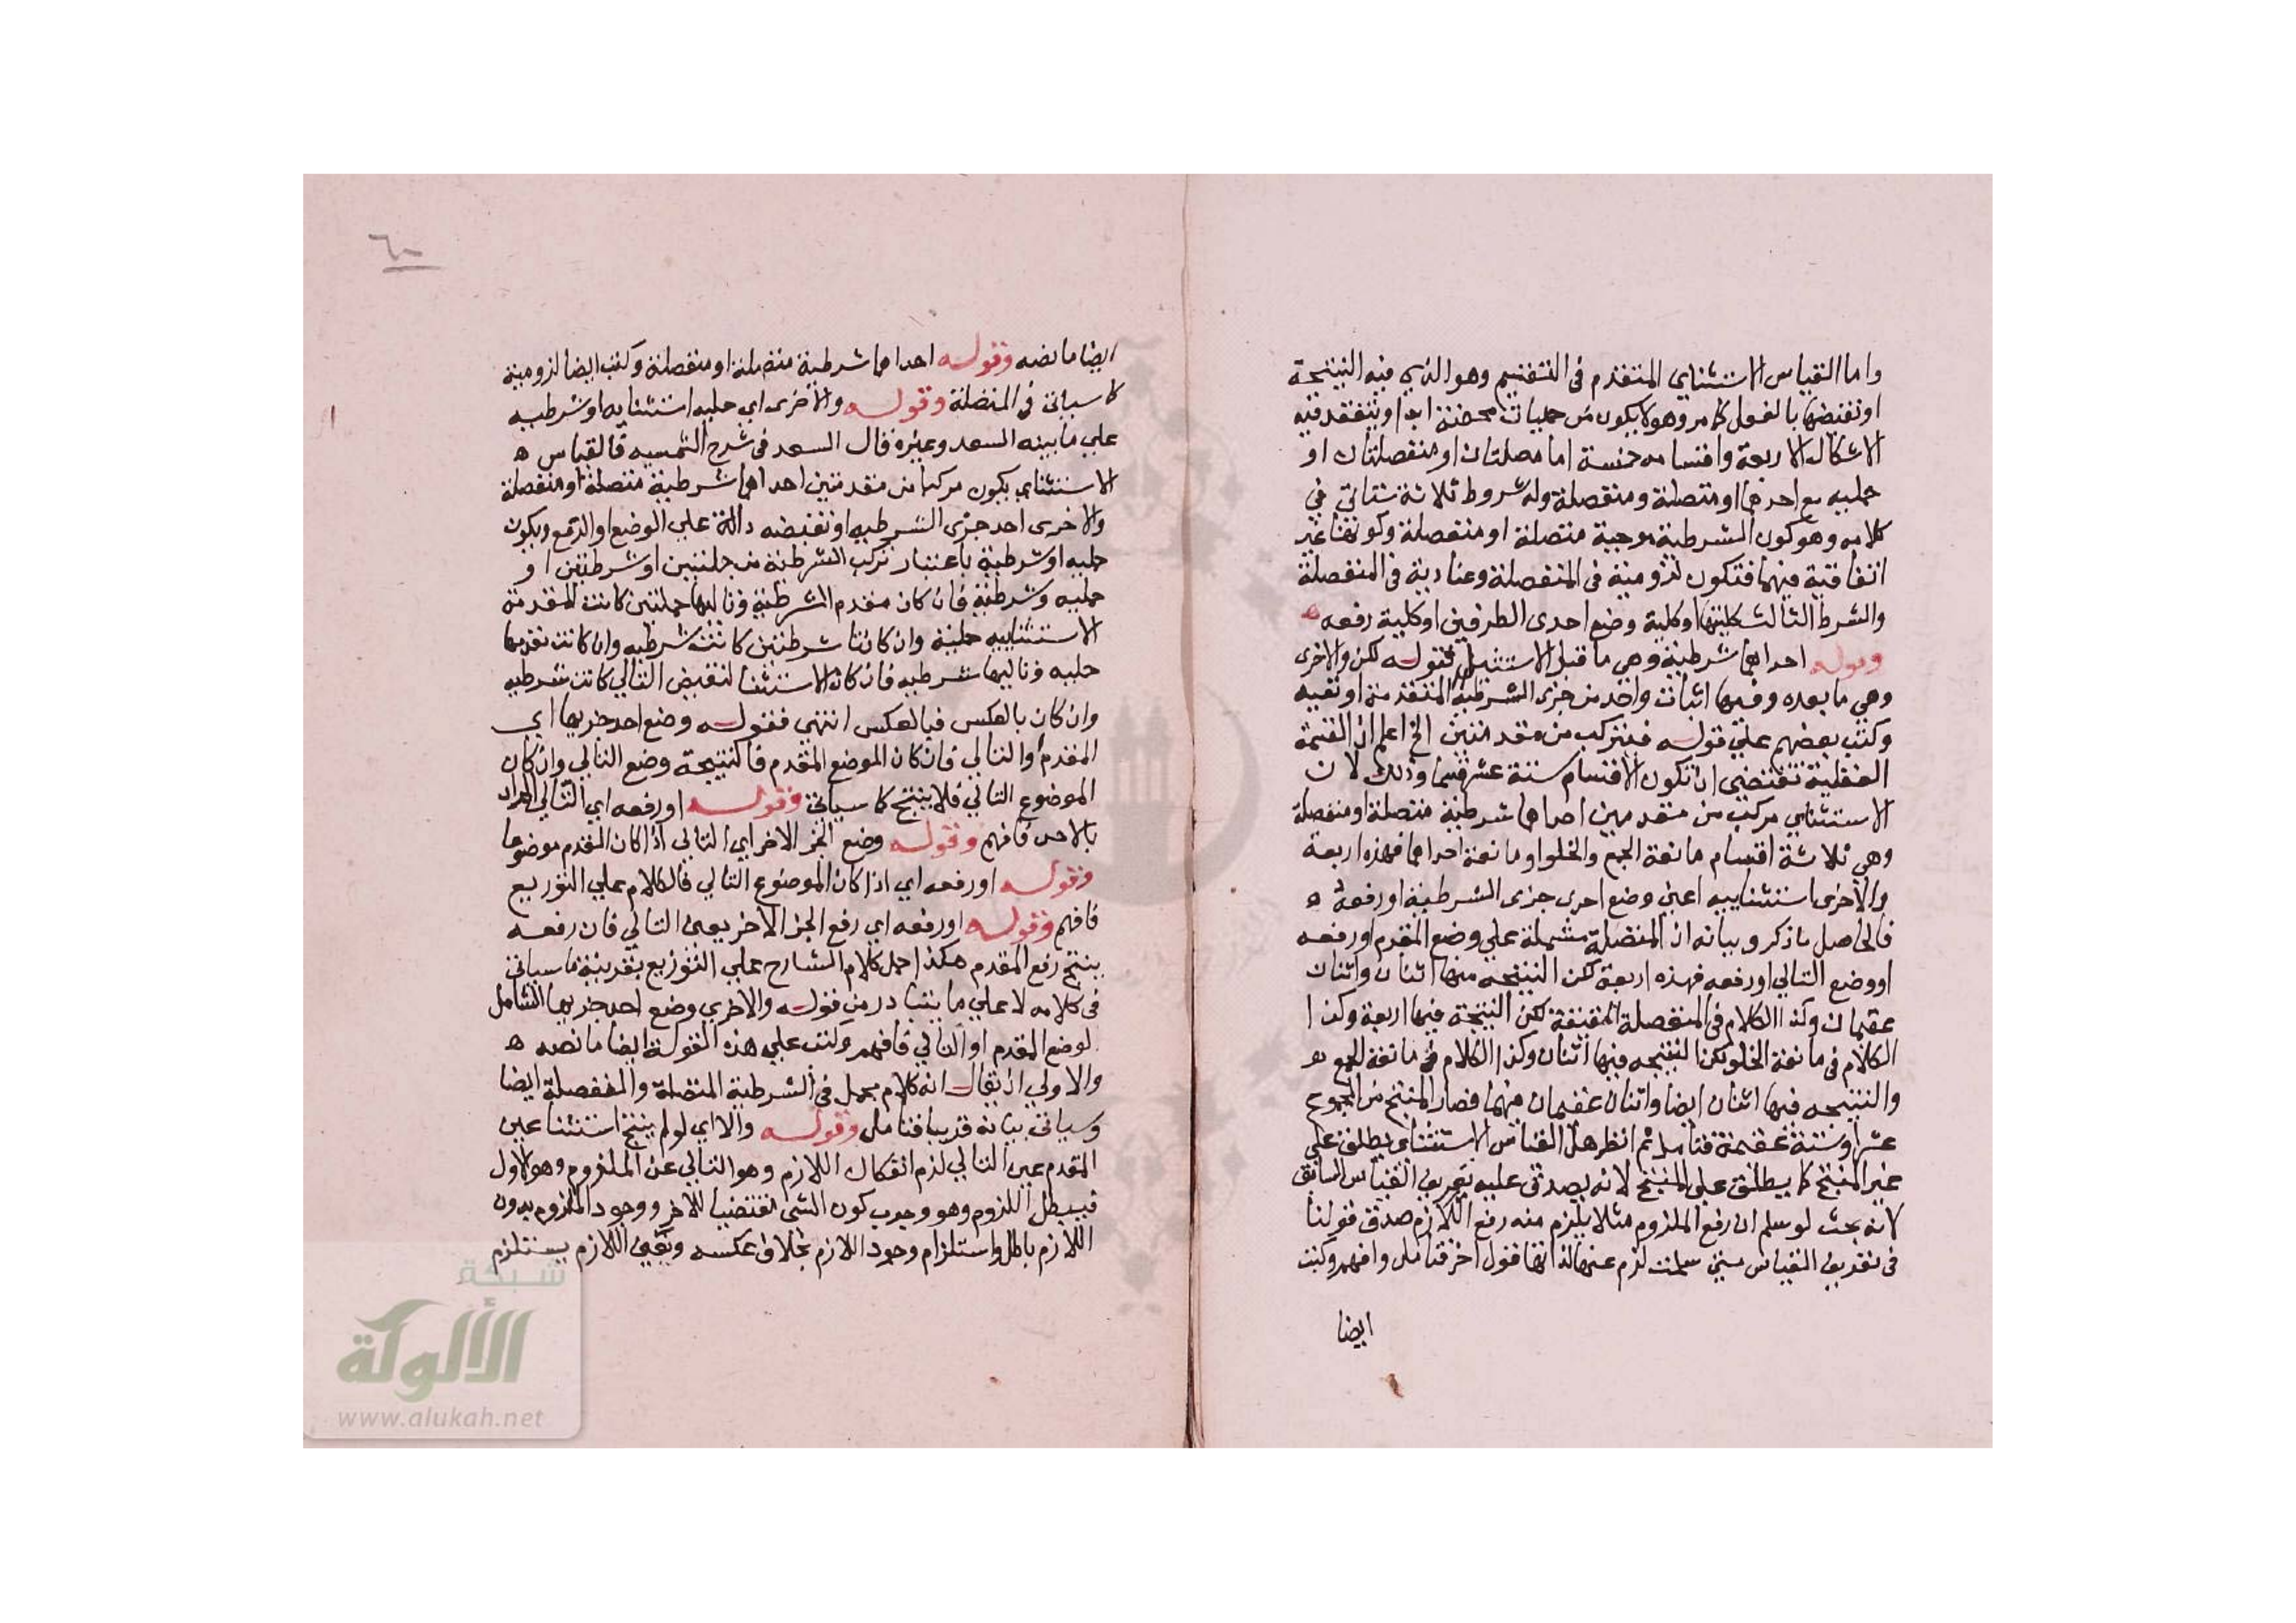 واما القياس الاستثناي المتقدم في التقسيم وهو الذي فيه النتيجة
او نقيضها بالفعل كما مر وهو لا يكون من حمليات محضة ابدا وينعقد فيه
الاشكال الاربعة واقسامه خمسة اما متصلتان او منفصلتان او
حمليه مع احدهما او متصلة ومنفصلة وله شروط ثلاثة ستاتي في
كلامه وهو كون الشرطية موجبة متصلة او منفصلة وكونها غير
اتفاقية فيهما فتكون لزومية في المتصلة وعنادية في المنفصلة
والشرط الثالث كليتها او كلية وضع احدى الطرفين او كلية رفعه ه
وقوله احداهما شرطية وهي ما قبل الاستثنا كقوله لكن والاخرى
وهي ما بعده وفيها اثبات واحد من جزى الشرطية المتقدمة او نفيه
وكتب بعضهم علي قوله فيتركب من مقدمتين الخ اعلم ان القسمة
العقلية تقتضي ان تكون الاقسام ستة عشر قسما وذلك لان
الاستثناي مركب من مقدمتين احداهما شرطية متصلة او منفصلة
وهي ثلاثة اقسام مانعة الجمع والخلو او مانعة احداهما فهذه اربعة
والاخرى استثناييه اعني وضع احدى جزى الشرطية او رفعه ه
فالحاصل ما ذكر وبيانه ان المتصلة مشتملة علي وضع المقدم او رفعه
او وضع التالي او رفعه فهذه اربعة لكن النتيجه منها اثنان واثنان
عقيمان وكذا الكلام في المنفصلة الحقيقة لكن النتيجة فيها اربعة وكذا
الكلام في مانعة الخلو لكن النتيجه فيها اثنان وكذا الكلام في مانعة الجمع ه
والنتيجه فيها اثنان ايضا واثنان عقيمان منهما فصار المنتج من المجموع
عشرا وستة عقيمة فتامل ثم انظر هل القياس الاستثناى يطلق علي
غير المنتج كما يطلق علي المنتج لانه يصدق عليه تعريف القياس السابق
لانه بحث لو سلم ان رفع الملزوم مثلا يلزم منه رفع اللازم صدق قولنا
في تعريف القياس متي سلمت لزم عنها لذاتها قول اخر فتامل وافهم وكتب
ايضا
٦٠
ايضا ما نصه وقوله احداهما شرطية متصلة او منفصلة وكتب ايضا لزومية
كما سياتى في المتصلة وقوله والاخرى اي حليه استثنايه او شرطيه
علي ما بينه السعد وغيره قال السعد في شرح الشمسيه فالقياس ه
الاستثناي يكون مركبا من مقدمتين احداهما شرطية متصلة او منفصلة
والاخرى احد جزى الشرطيه او نقيضه دالة علي الوضع او الرفع ويكون
حليه او شرطية باعتبار تركب الشرطية من حليتين او شرطيتين او
حمليه وشرطية فان كان مقدم الشرطية وتاليها حمليتين كانت المقدمة
الاستثناييه حملية وان كانتا شرطيتين كانت شرطيه وان كانت مقدمها
حليه وتاليها شرطيه فان كان الاستثنا لنقيض التالي كانت شرطيه
وان كان بالعكس فبالعكس انتهي فقوله وضع احد جزيها اي
المقدم او التالي فان كان الموضع المقدم فالنتيجة وضع التالي وان كان
الموضوع التالي فلا ينتج كما سياتى وقوله او رفعه اي التالي المراد
بالاحد فافهم وقوله وضع الجز الاخر اي التالي اذا كان المقدم موضوعا
وقوله او رفعه اي اذا كان الموضوع التالي فالكلام علي التوزيع
فافهم وقوله او رفعه اي رفع الجز الاخر يعني التالي فان رفعه
ينتج رفع المقدم هكذا حمل كلام الشارح علي التوزيع بقرينة ما سياتى
في كلامه لا علي ما يتبادر من قوله والاخري وضع احد جزيها الشامل
لوضع المقدم او التالي فافهم وكتب علي هذه القولة ايضا ما نصه ه
والاولي ان يقال انه كلام مجمل في الشرطية المتصلة والمنفصلة ايضا
وسياتى بيانه قريبا فتامل وقوله والا اي لو لم ينتج استثنا عين
المقدم عين التالي لزم انفكاك اللازم وهو التالي عن الملزوم وهو الاول
فيبطل اللزوم وهو وجوب كون الشي مقتضيا للاخر ووجود الملزوم بدون
اللازم باطل واستلزام وجود اللازم بخلاف عكسه ونفي اللازم يستلزم
شبكة
الألوكة
www.alukah.net